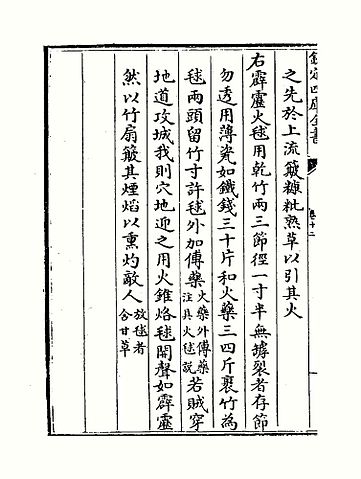 欽定四庫全書
卷十二
之先於上流簸糠粃熟草以引其火
右霹靂火毬用乾竹兩三節徑一寸半無罅裂者存節
勿透用薄瓷如鐵錢三十片和火藥三四斤裹竹為
毬兩頭留竹寸許毬外加傅藥火藥外傅藥注具火毬説若賊穿
地道攻城我則穴地迎之用火錐烙毬開聲如霹靂
然以竹扇簸其煙焰以熏灼敵人放毬者含甘草